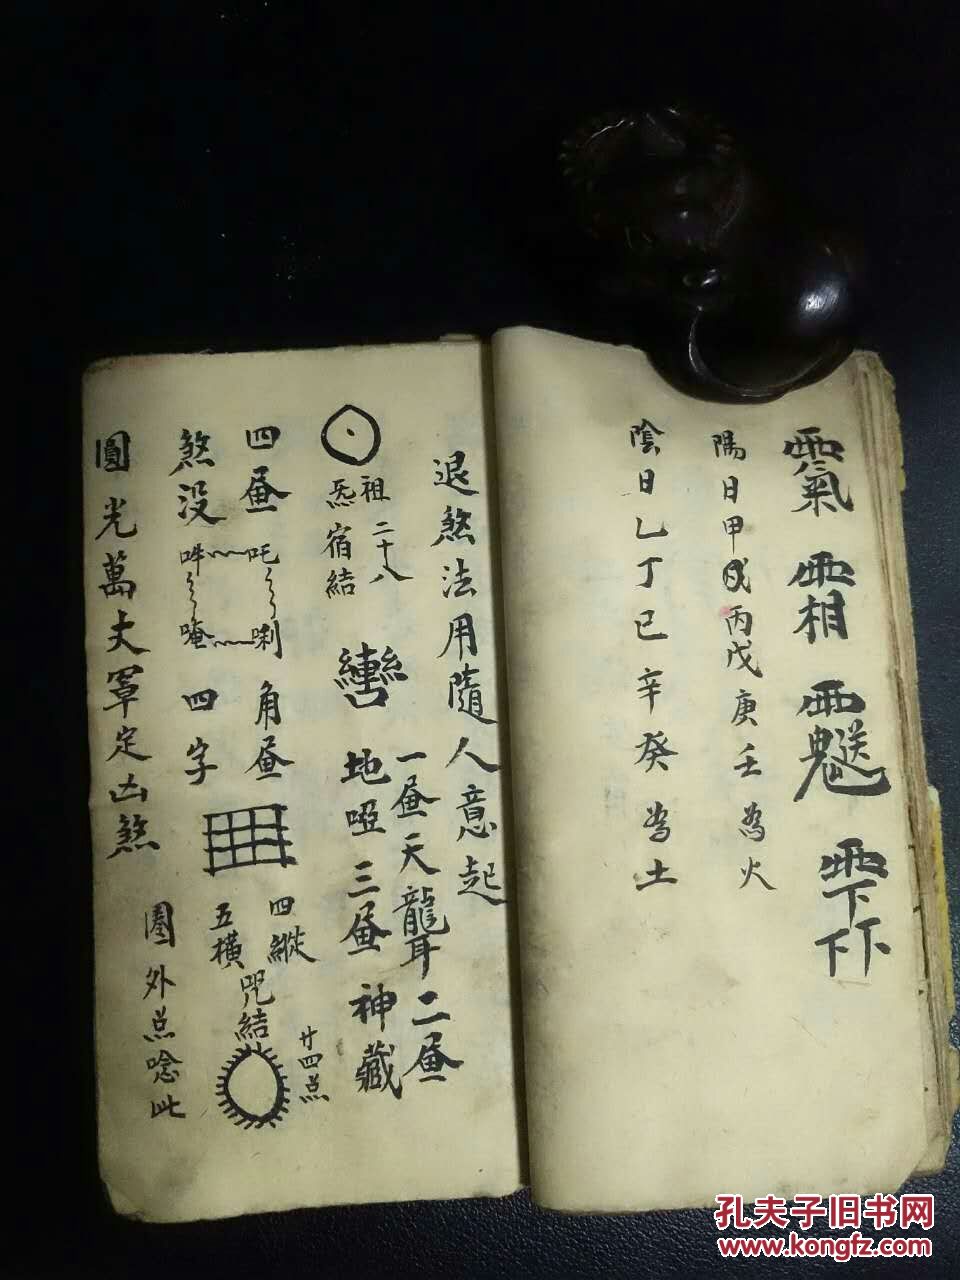 陽日甲丙戊庚壬為火
陰日乙丁已辛癸為土
退煞法用隨人意起
一昼天龍耳二昼
地啞三昼神藏
祖二十八
炁宿結
四昼
吒
唎
角昼
四縱
五橫
咒結
廿四点
煞没
吽
唵
四字
圓光萬丈罩定凶煞
圈外点唸此
孔夫子旧书网
www.kongfz.com